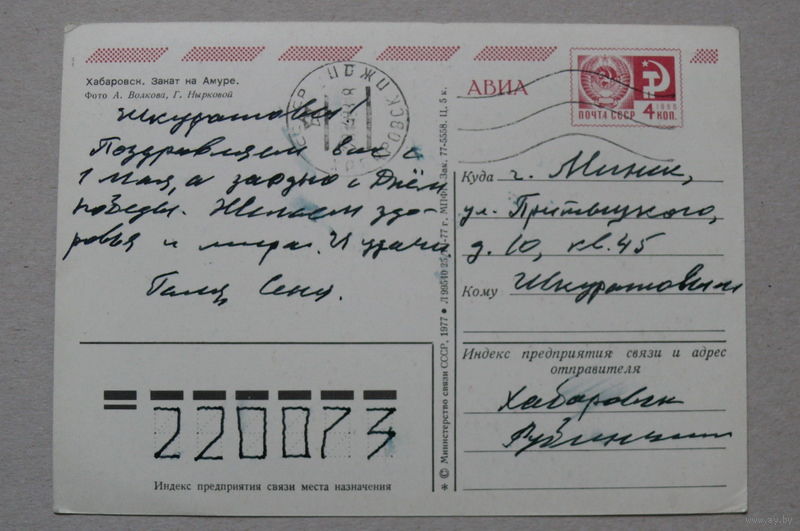 Хабаровск. Закат на Амуре.
Фото А. Волкова, Г. Нырковой
Шкуратовы!
Поздравляем вас с
1 Мая, а заодно с Днём
победы. Желаем здо-
ровья и мира. И удачи.
Галя, Сеня.
АВИА
ПОЧТА СССР
4 КОП.
1966
Куда г. Минск,
ул. Притыцкого,
д. 10, кв. 45
Кому Шкуратовым
Индекс предприятия связи и адрес
отправителя
Хабаровск
220073
Индекс предприятия связи места назначения
* © Министерство связи СССР, 1977 ● Л 99540 МПФГ. Зак. 77-5558. Ц. 5 к.
www.ay.by